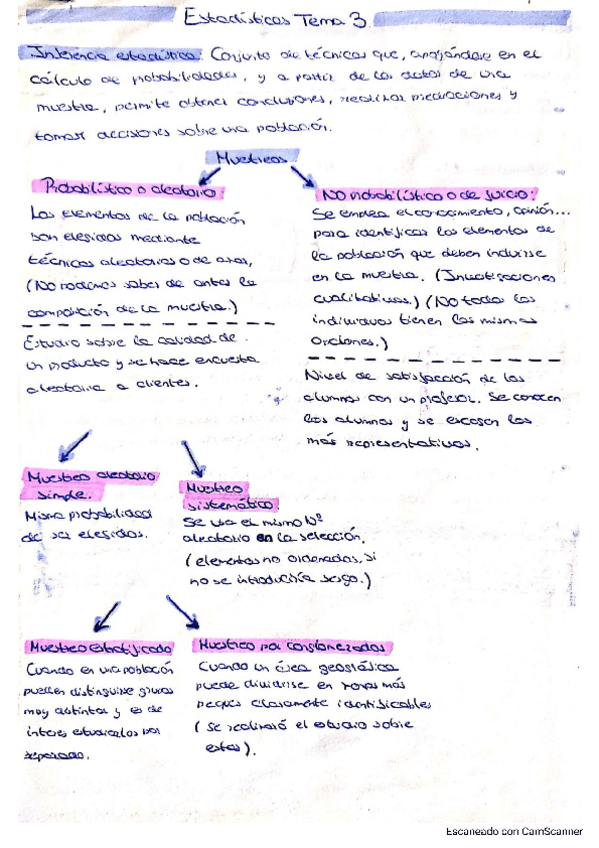 Estadísticas Tema 3
Inferencia estadística: Conjunto de técnicas que, apoyándose en el
cálculo de probabilidades, y a partir de los datos de una
muestra, permite obtener conclusiones, realizar predicciones y
tomar decisiones sobre una población.
Muestreos
Probabilístico o aleatorio
Los elementos de la población
son elegidos mediante
técnicas aleatorias o de azar,
(No podemos saber de antes la
composición de la muestra.)
Estudio sobre la calidad de
un producto y se hace encuesta
aleatoria a clientes.
No probabilístico o de juicio:
Se emplea el conocimiento, opinión...
para identificar los elementos de
la población que deben incluirse
en la muestra. (Investigaciones
cualitativas.) (No todos los
individuos tienen las mismas
opciones.)
Nivel de satisfacción de los
alumnos con un profesor. Se conocen
los alumnos y se escogen los
más representativos.
Muestreo aleatorio
simple.
Misma probabilidad
de ser elegidos.
Muestreo
sistemático:
Se usa el mismo Nº
aleatorio en la selección.
(elementos no ordenados, si
no se introduciría sesgo.)
Muestreo estratificado
Cuando en una población
pueden distinguirse grupos
muy distintos y es de
interes estudiarlos por
separado.
Muestreo por conglomerados
Cuando un área geográfica
puede dividirse en zonas más
peques claramente identificables
(se realizará el estudio sobre
estas).
Escaneado con CamScanner